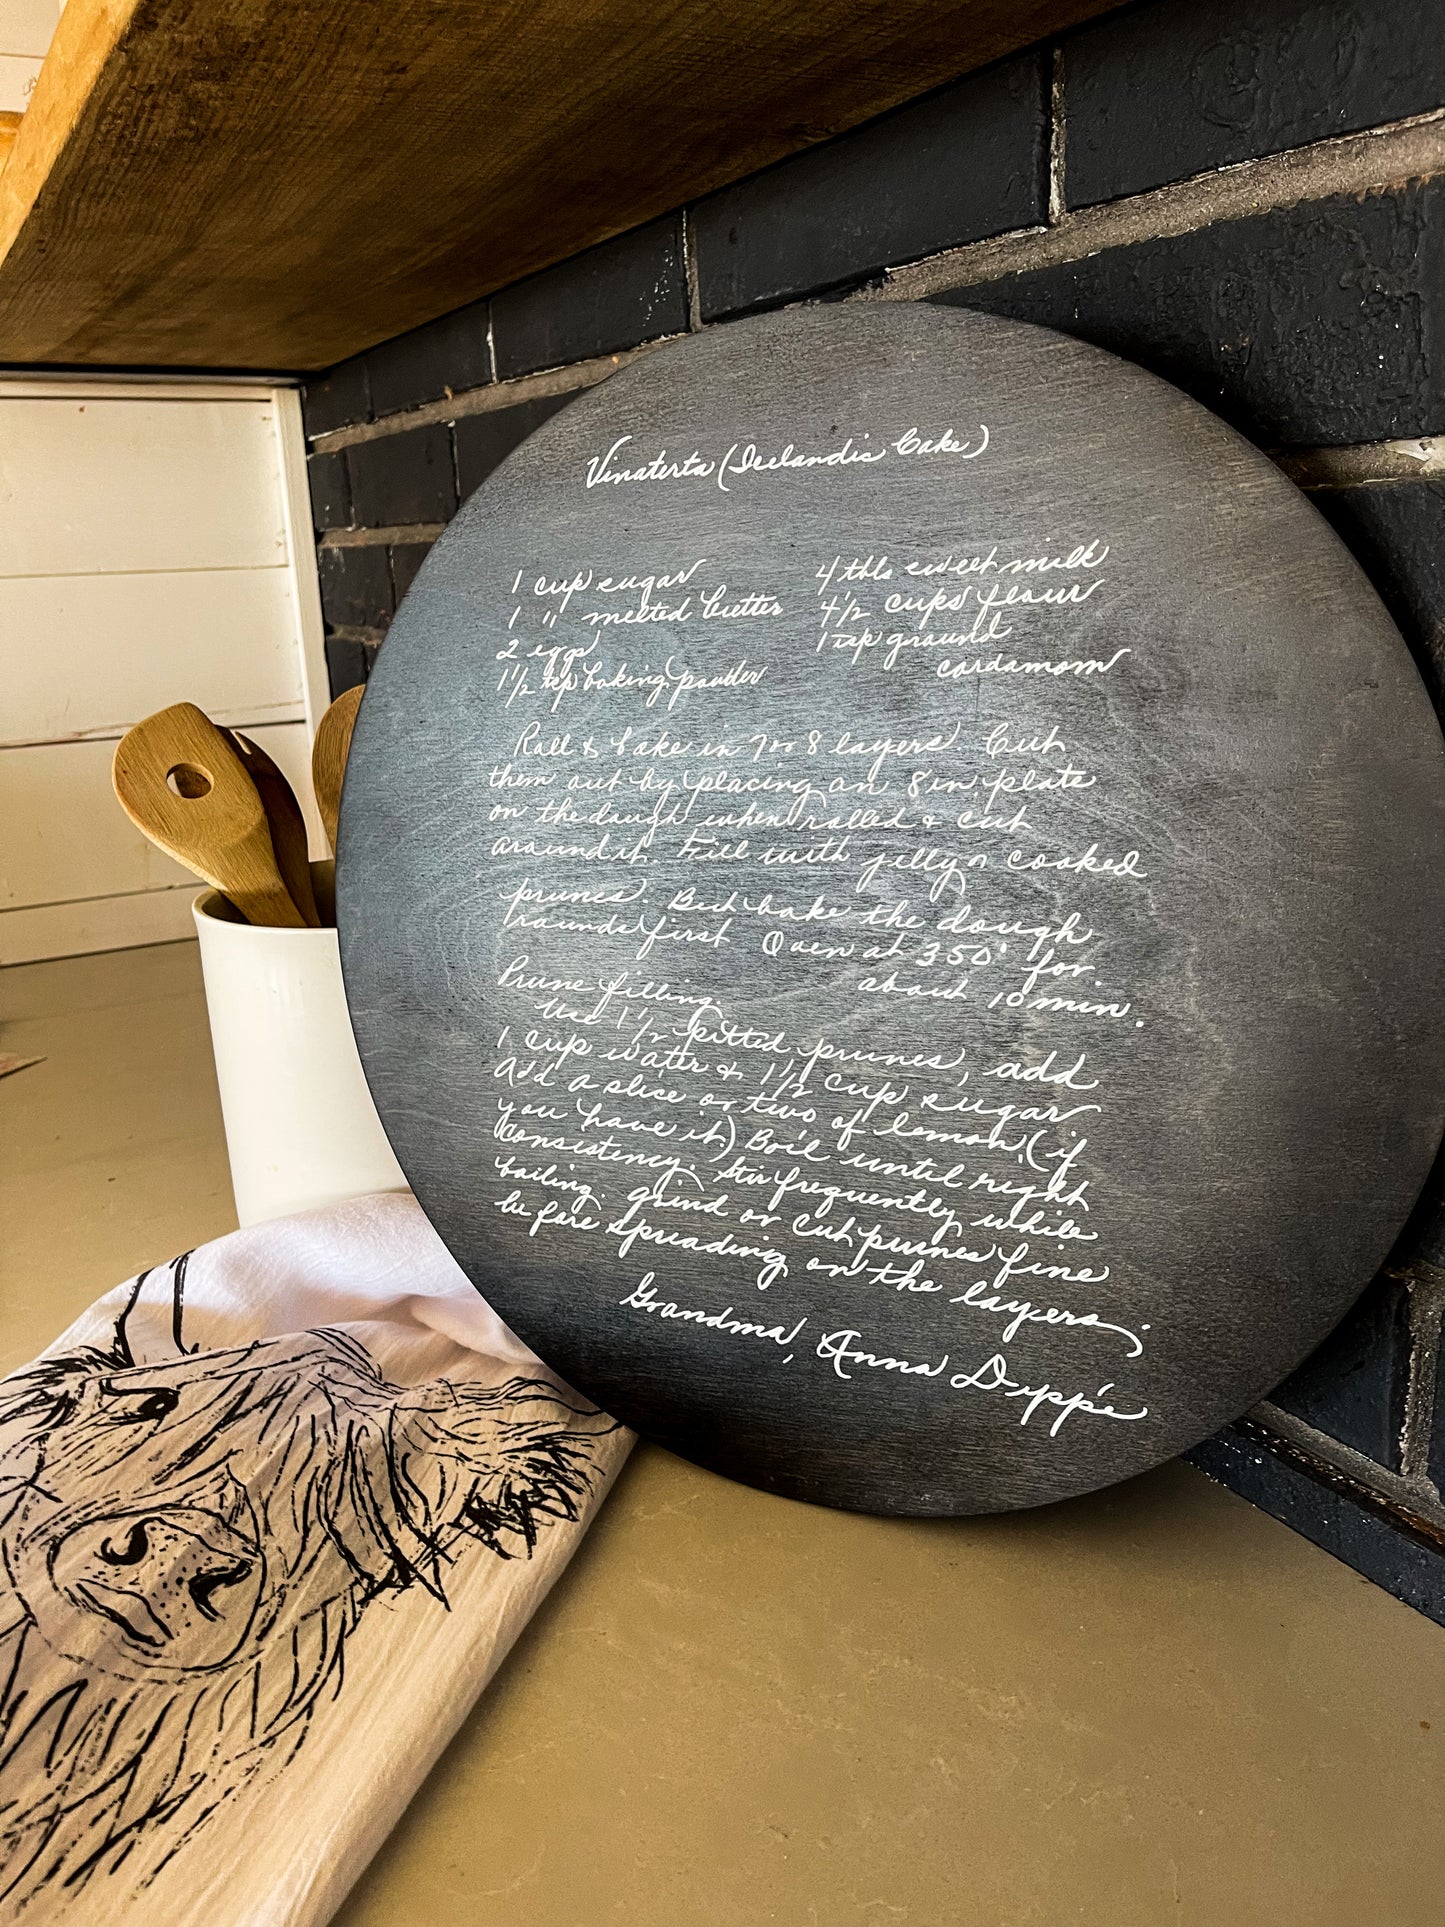 Vinaterta (Icelandic Cake)
1 cup sugar
1 " melted butter
2 eggs
1 1/2 tsp baking powder
4 tbls sweet milk
4 1/2 cups flour
1 tsp ground
cardamom
Roll & bake in 7 or 8 layers. Cut
them out by placing an 8 in plate
on the dough when rolled & cut
around it. Fill with jelly or cooked
prunes. But bake the dough
rounds first Oven at 350° for
about 10 min.
Prune filling.
Use 1 1/2 pitted prunes, add
1 cup water & 1 1/2 cup sugar
Add a slice or two of lemon. (if
you have it.) Boil until right
consistency. Stir frequently while
boiling. Grind or cut prunes fine
before spreading on the layers.
Grandma, Anna Dippé